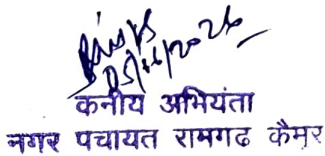 05/11/2026
कनीय अभियंता
नगर पंचायत रामगढ कैमुर